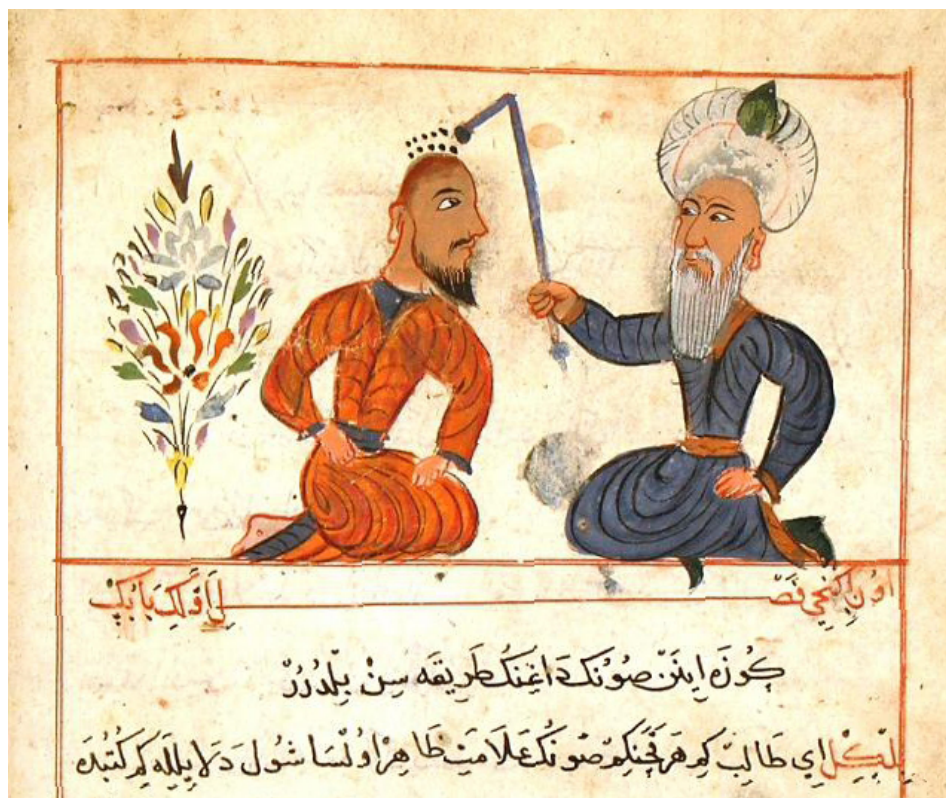 اوُنِ اِكِنْجِي فَصْلِ اَوَّلكِ بَابُكْ
كُوزَه اِينَنْ صُونُكْ دَاغِنُكْ طَرِيقَه سِنْ بِلْدُرُرْ
بِلْكِلْ اي طَالِبْ كِمْ هَرْ قَچَنْكِمْ صُونُكْ عَلَامَتِ ظَاهِرْ اوُلْسَا شُولْ دَلَايِلَّه كِمْ كُتُبْدَه